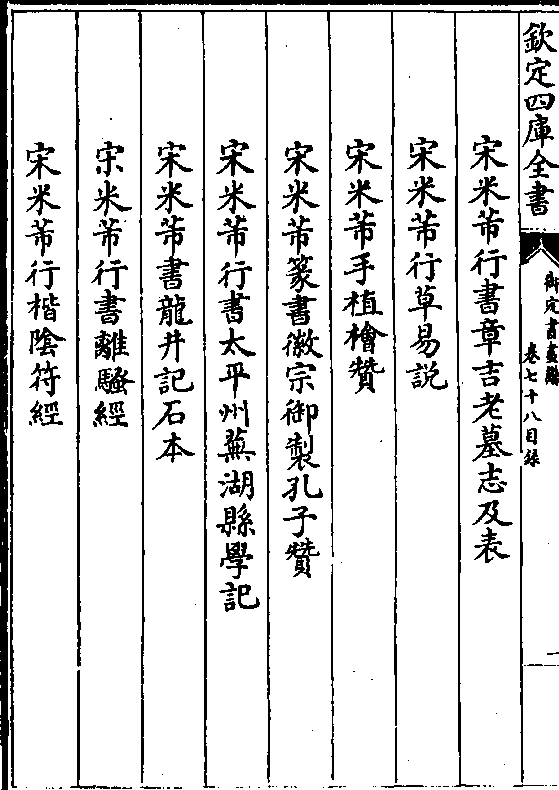 欽定四庫全書
御定書畫譜
卷七十八目錄
一
宋米芾行書章吉老墓志及表
宋米芾行草易説
宋米芾手植檜贊
宋米芾篆書徽宗御製孔子贊
宋米芾行書太平州蕪湖縣學記
宋米芾書龍井記石本
宋米芾行書離騷經
宋米芾行楷陰符經